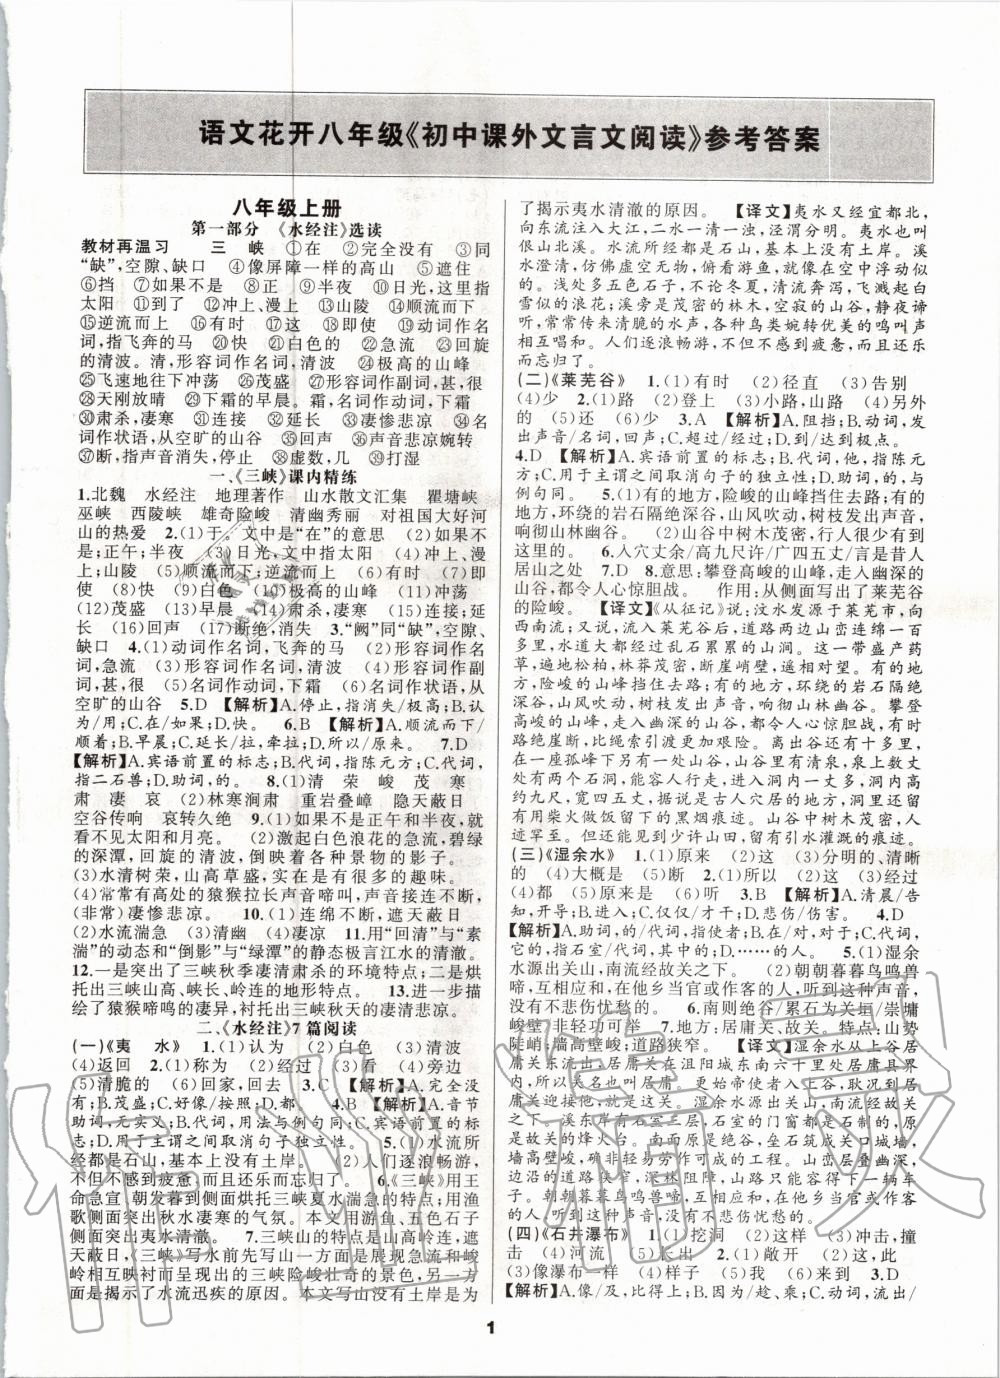 语文花开八年级《初中课外文言文阅读》参考答案
八年级上册
第一部分 《水经注》选读
教材再温习 三 峡 ①在 ②完全没有 ③同
“缺”,空隙、缺口 ④像屏障一样的高山 ⑤遮住
⑥挡 ⑦如果不是 ⑧正 ⑨半夜 ⑩日光,这里指
太阳 ⑪到了 ⑫冲上、漫上 ⑬山陵 ⑭顺流而下
⑮逆流而上 ⑯有时 ⑰这 ⑱即使 ⑲动词作名
词,指飞奔的马 ⑳快 ㉑白色的 ㉒急流 ㉓回旋
的清波。清,形容词作名词,清波 ㉔极高的山峰
㉕飞速地往下冲荡 ㉖茂盛 ㉗形容词作副词,甚,很
㉘天刚放晴 ㉙下霜的早晨。霜,名词作动词,下霜
㉚肃杀,凄寒 ㉛连接 ㉜延长 ㉝凄惨悲凉 ㉞名
词作状语,从空旷的山谷 ㉟回声 ㊱声音悲凉婉转
㊲断,指声音消失,停止 ㊳虚数,几 ㊴打湿
一、《三峡》课内精练
1.北魏 水经注 地理著作 山水散文汇集 瞿塘峡
巫峡 西陵峡 雄奇险峻 清幽秀丽 对祖国大好河
山的热爱 2.(1)于。文中是“在”的意思 (2)如果
不是;正午;半夜 (3)日光,文中指太阳 (4)冲上、漫
上;山陵 (5)顺流而下;逆流而上 (6)有时 (7)即
使 (8)快 (9)白色 (10)极高的山峰 (11)冲荡
(12)茂盛 (13)早晨 (14)肃杀,寒凉 (15)连接;延
长 (16)回声 (17)断绝,消失 3.“阙”同“缺”,空隙、
缺口 4.(1)动词作名词,飞奔的马 (2)形容词作名
词,急流 (3)形容词作名词,清波 (4)形容词作副
词,很 (5)名词作动词,下霜 (6)名词作状语,从
空旷的山谷 5.D 【解析】A.停止,指消失/极;B.认
为/用;C.在/如果;D.快。 6.B 【解析】A.顺流而下/
顺着;B.早晨;C.延长/拉,牵拉;D.所以/来。 7.D
【解析】A.宾语前置的标志;B.代词,指陈元方;C.代词,
指二石兽;D.助词,的。 8.(1)清 荣 峻 茂 寒
肃 凄 哀 (2)林寒涧肃 重岩叠嶂 隐天蔽日
空谷传响 哀转久绝 9.(1)如果不是正午和半夜,就
看不见太阳和月亮。 (2)激起白色浪花的急流,碧绿
的深潭,回旋的清波,倒映着各种景物的影子。
(3)水清树荣,山高草盛,实在是有很多的趣味。
(4)常常有高处的猿猴拉长声音啼叫,声音接连不断,
(非常)凄惨悲凉。 10.(1)连绵不断,遮天蔽日
(2)水流湍急 (3)清幽 (4)凄凉 11.用“回清”与“素
湍”的动态和“倒影”与“绿潭”的静态极言江水的清澈。
12.一是突出了三峡秋季凄清肃杀的环境特点;二是烘
托出三峡山高、涧深、岭连的地形特点。 13.进一步描
绘了猿猴啼鸣的凄异,衬托出三峡秋天的凄清悲凉。
二、《水经注》7篇阅读
(一)《夷 水》 1.(1)认为 (2)白色 (3)清波
(4)返回 2.(1)称为 (2)经过 (3)看 (4)代词
(5)清脆的 (6)回家,回去 3.C 【解析】A.完全没
有;B.茂盛;C.好像/像;D.都。 4.B 【解析】A.音节
助词,无实义;B.代词,用法与例句同;C.宾语前置的标
志;D.用于主谓之间取消句子独立性。 5.(1)水流所
经都是石山,基本上没有土岸。 (2)人们逐浪畅游,
不但不感到疲惫反而流连忘返。 6.《三峡》用王
命急宣,朝发暮到侧面烘托三峡夏水湍急的特点;用渔
歌侧面突出秋水凄寒的气氛。本文用游鱼、五色石子
侧面突出夷水清澈。 7.三峡山的特点是山高岭连,遮
天蔽日,《三峡》写水前先写山一方面是展现高山峻
岭相映衬而呈现出的三峡险峻壮奇的景色,另一方
面是揭示了水流迅疾的原因。本文写山没有土岸是为
了揭示夷水清澈的原因。 【译文】夷水又经宜都北,
向东流注入大江,二水一清一浊,泾渭分明。夷水也叫
佷山北溪。水流所经都是石山,基本上没有土岸。溪
水澄清,仿佛虚空无物,俯看游鱼,就像凌空浮游似
的。浅处多五色石子,冬夏不断,清流奔泻,飞溅起白
雪似的浪花;溪旁是茂密的林木,空寂的山谷,静夜谛
听,常常传来清脆的水声,各种鸟类婉转优美的鸣叫声
相互唱和。人们逐浪畅游,不但不感到疲惫,而且流连
而忘归了。
(二)《莱芜谷》 1.(1)有时 (2)径直 (3)告别
(4)少 2.(1)路 (2)登上 (3)小路,山路 (4)另外
的 (5)还 (6)少 3.A 【解析】A.阻挡;B.动词,发
出声音/名词,回声;C.超过/经过;D.到达/到极点。
4.D 【解析】A.宾语前置的标志;B.代词,他,指陈元
方;C.用于主谓之间取消句子的独立性;D.助词,的,与
例句同。 5.(1)有的地方,险峻的山峰挡住去路;有的
地方,环绕的岩石隔绝深谷,山风吹动,树枝发出声音,
响彻山林幽谷。 (2)山谷中树木茂密,行人很少有到
这里的。 6.入穴丈余/高九尺许/广四五丈/言是昔人
居山之处 7.D 8.意思:攀登高峻的山峰,走入幽深的
山谷,都令人心惊胆战。 作用:从侧面写出了莱芜谷
的险峻。 【译文】《从征记》说:汶水发源于莱芜市,向
西南流;又说,流入莱芜谷后,道路两边山峦连绵一百
多里,水道大都经过乱石累累的山涧。这一带盛产药
草,遍地松柏,林莽绵绵,断崖峭壁,遥相掩映。有的地
方,险峻的山峰挡住去路;有的地方,环绕的岩石隔绝
深谷,山风吹动,树枝发出声音,响彻山林幽谷。攀登
高峻的山峰,走入幽深的山谷,都令人心惊胆战,有时
路绝崖断,比绳索引渡更加艰险。离出谷还有十多里,
在一座孤峰特出的山上,有个山谷里有清泉,泉上数丈
有两个石洞,能容人行走,进入洞内一丈多,洞内高
约九尺,宽四五丈,传说是古人穴居的地方,洞中还留
有用柴火做饭留下的黑烟痕迹。山谷中树木茂密,人
迹罕至。但仍能见到少许山田,留有引水灌溉的痕迹。
(三)《湿余水》 1.(1)原来 (2)这 (3)分明的、清晰
的 (4)大概是 (5)断 2.(1)所以 (2)这 (3)经过
(4)都 (5)原来是 (6)听 3.B 【解析】A.清晨/告
知,开导;B.进入;C.仅仅/才干;D.悲伤/伤害。 4.D
【解析】A.助词,的/代词,指使者;B.在/对,对于;C.代词,
它的,指石室/代词,其中的;D.……的人。 5.(1)湿余
水源出关山,南流经过关下。 (2)朝朝暮暮鸟鸣兽
啼,互相应和,在他乡当官或作客的人听到这种声音,
没有不伤感忧愁的。 6.南则绝谷/累石为关址/崇墉
峻壁/非轻功可举 7.地方:居庸关、故关。特点:山势
陡峭;墙高壁峻;道路狭窄。 【译文】湿余水从上谷居
庸关东流出,关在沮阳城东南六十里处居庸界内,
所以,关名也叫居庸。 更始帝使者入上谷,耿况到居
庸关迎接,就是此关。湿余水源出关山,南流经过故关
下。溪东岸有石室三层,石室的门窗都是石做的,原来
是故关的烽火台。南面原是绝谷,垒石筑成关口城墙,
墙高壁峻,不是轻易劳作可成的工程。山峦层叠幽深,
山边的侧径狭窄,山路只能容下一辆车子。
朝朝暮暮鸟鸣兽啼,互相应和,在他乡当官或作客
的人,听到这种声音,没有不伤感忧愁的。
(四)《石井瀑布》 1.(1)挖洞 (2)这样 (3)冲击,撞
击 (4)河流 (5)高 2.(1)敞开 (2)这,此
(3)像瀑布一样 (4)尝试 (5)交汇 (6)坠落 3.D
【解析】A.像/及,比得上;B.因为/趁、乘;C.动词,流出/
1